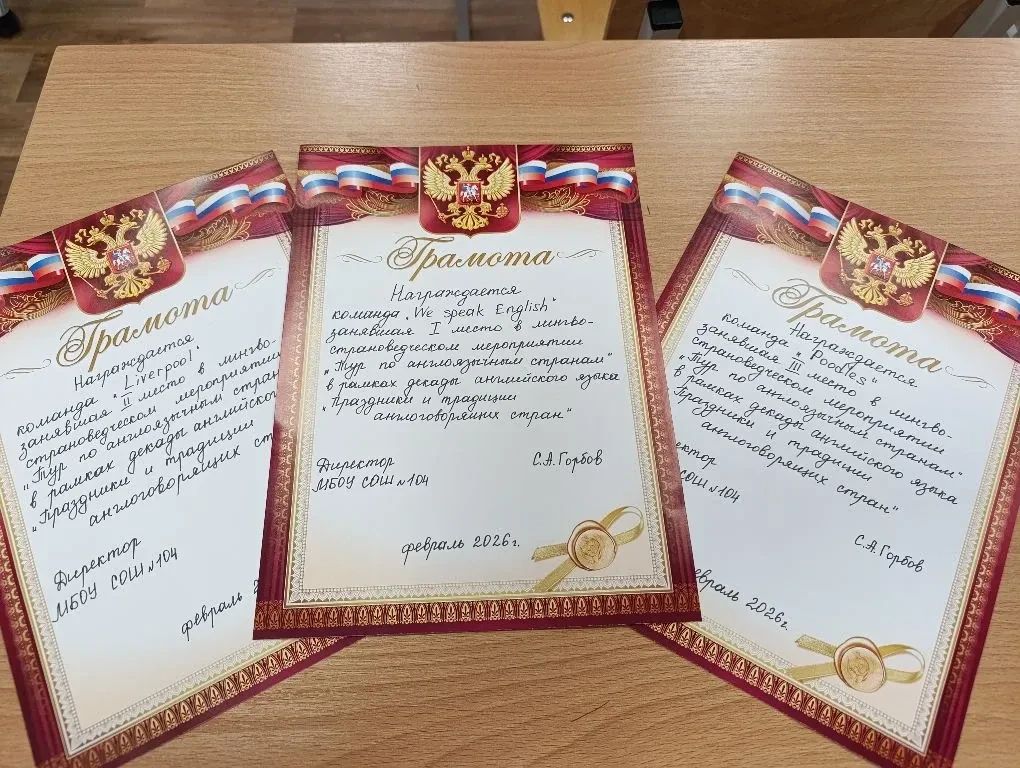 Грамота
Награждается
команда „Liverpool“
занявшая II место в лингво-
страноведческом мероприятии
„Тур по англоязычным стран
в рамках декады английског
„Праздники и традиции
англоговорящих
Директор
МБОУ СОШ №104
февраль
Грамота
Награждается
команда „We speak English“
занявшая I место в лингво-
страноведческом мероприятии
„Тур по англоязычным странам“
в рамках декады английского языка
„Праздники и традиции
англоговорящих стран“
Директор С.А.Горбов
МБОУ СОШ №104
февраль 2026г.
Грамота
Награждается
команда „Poodles“
занявшая III место в лингво-
страноведческом мероприятии
„Тур по англоязычным странам“
в рамках декады английского языка
„Праздники и традиции
англоговорящих стран“
ректор С.А.Горбов
СОШ №104
евраль 2026г.